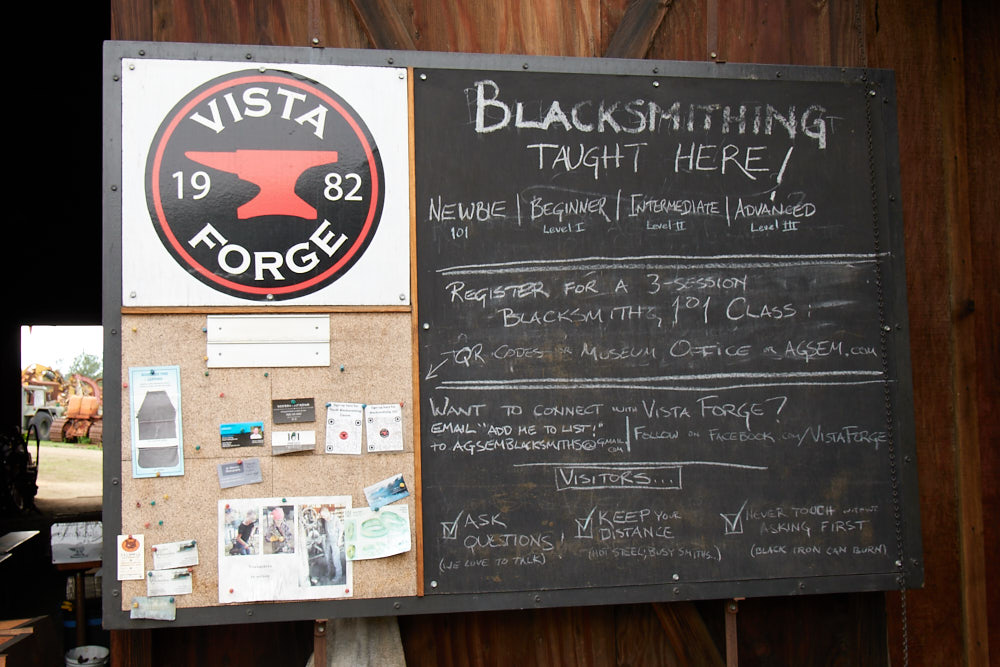 VISTA
19 82
FORGE
BLACKSMITHING
TAUGHT HERE!
NEWBIE | BEGINNER | INTERMEDIATE | ADVANCED
101 Level I Level II Level III
REGISTER FOR A 3-SESSION
BLACKSMITHG 101 CLASS:
QR CODES OR MUSEUM OFFICE OR AGSEM.COM
WANT TO CONNECT WITH VISTA FORGE?
EMAIL "ADD ME TO LIST!"
TO AGSEMBLACKSMITHS@GMAIL.COM
FOLLOW ON FACEBOOK.COM/VISTAFORGE
VISITORS...
ASK
QUETIONS!
(WE LOVE TO TALK)
KEEP YOUR
DISTANCE
(HOT STEEL, BUSY SMITHS.)
NEVER TOUCH WITHOUT
ASKING FIRST
(BLACK IRON CAN BURN)
101